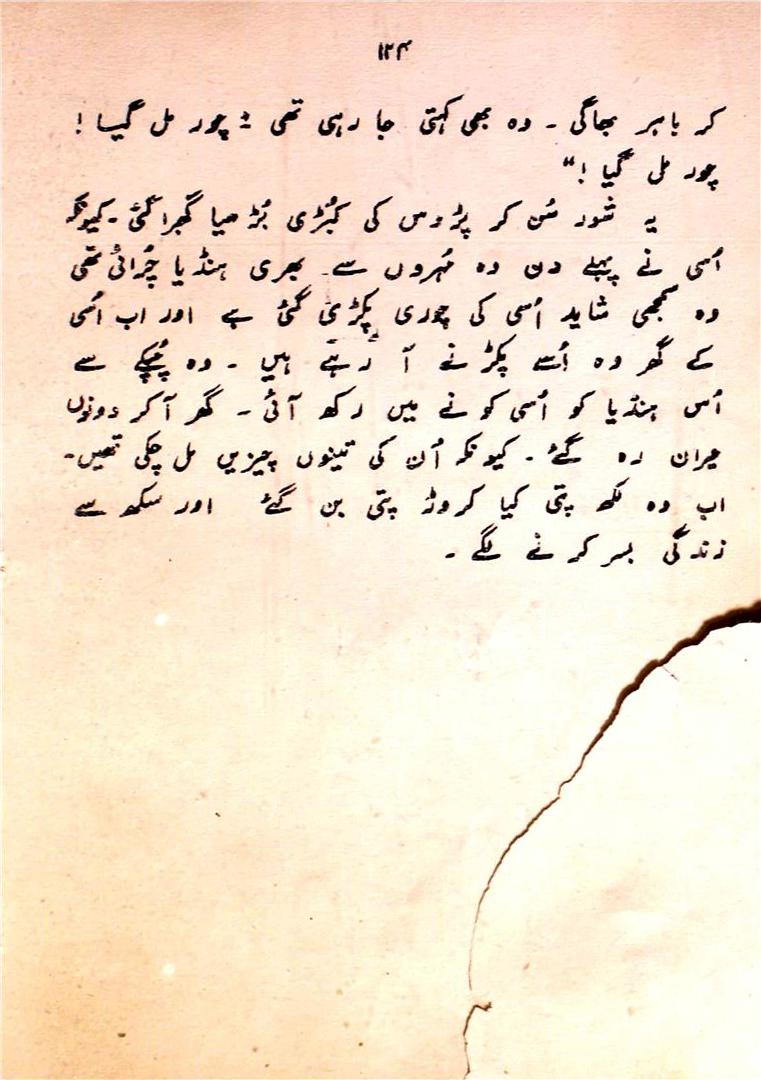 ۱۲۴
کر باہر بھاگی ۔ وہ بھی کہتی جا رہی تھی : چور مل گیا !
چور مل گیا !“
یہ شور سُن کر پڑوس کی کبُڑی بُڑھیا گھبرا گئی ۔ کیونکہ
اُسی نے پہلے دن وہ مُہروں سے بھری ہنڈیا چُرائی تھی
وہ سمجھی شاید اُسی کی چوری پکڑی گئی ہے اور اب اُسی
کے گھر وہ اُسے پکڑنے آ رہے ہیں ۔ وہ چُپکے سے
اُس ہنڈیا کو اُسی کونے میں رکھ آئی ۔ گھر آ کر دونوں
حیران رہ گئے ۔ کیونکہ اُن کی تینوں چیزیں مل چکی تھیں ۔
اب وہ لکھ پتی کیا کروڑ پتی بن گئے اور سکھ سے
زندگی بسر کرنے لگے ۔